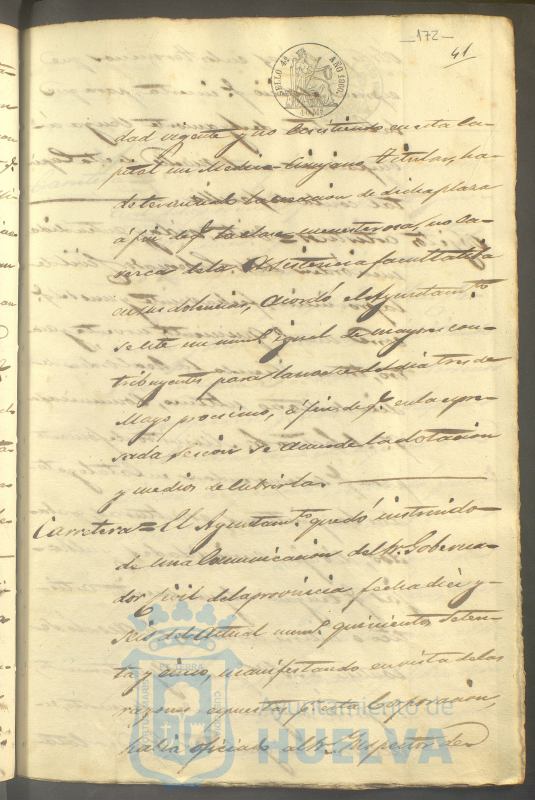 172
41
SELLO 4º AÑO 1860
dad urgente y no ecsistiendo en esta ca-
pital un Medico-Cirujano titular, ha-
de la creacion de dicha plaza
á fin de q.e la clase menesterosa, no ca-
rezca de la Asistencia facultativa
en sus dolencias, Acordó el Ayuntam.to
se cite un num.o igual de mayores con-
tribuyentes para la noche del dia tres de
Mayo procsimo, á fin de q.e en la espre-
sada sesion se acuerde la dotacion
y medios de cubrirla.
Carretera = El Ayuntam.to quedó instruido
de una Comunicacion del S.r Goberna-
dor Civil de la provincia fecha diez y
seis del Actual num.o quinientos seten-
ta y cinco, manifestando en vista de las
razones espuestas p.r esta Corporacion,
habia oficiado al S.r Inspector de
Ayuntamiento de
HUELVA